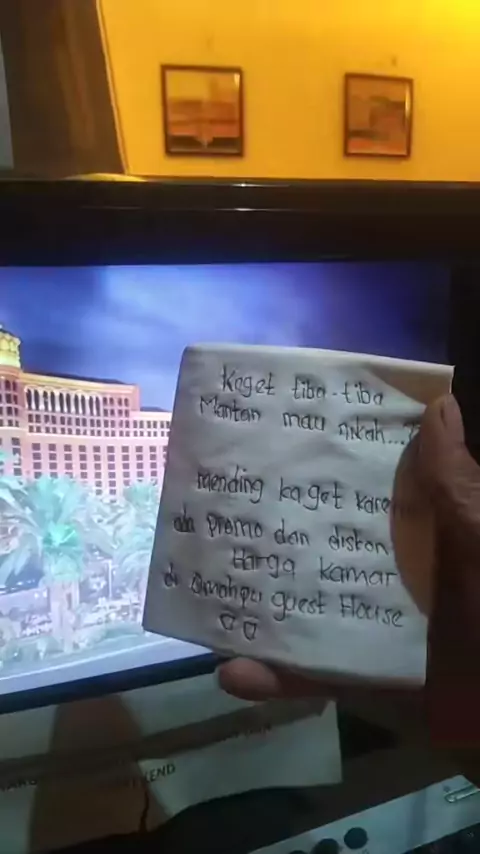 Kaget tiba-tiba
Mantan mau nikah...?
mending kaget
ada promo dan diskon
Harga kamar
di Omahpu guest House